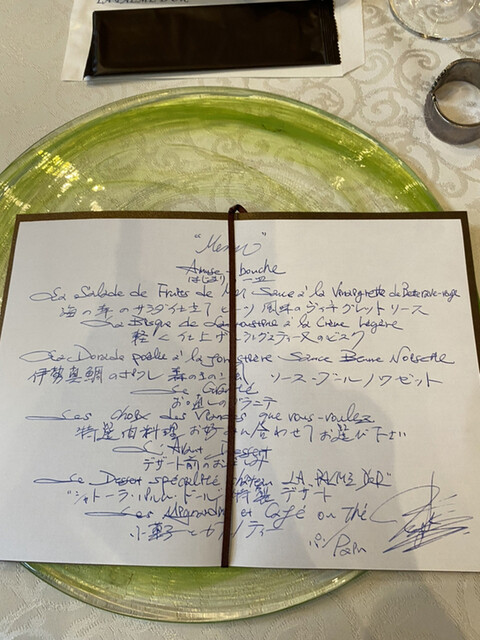 "Menu"
Amuse-bouche
はじまりの一皿
La Salade de Fruits de Mer Sauce à la Vinaigrette de Betterave-rouge
海の幸のサラダ仕立て 風味のヴィネグレットソース
La Bisque de Langoustine à la Crème Légère
軽く仕上げた ラングスティーヌのビスク
La Dorade poêlée à la forestière Sauce Beurre Noisette
伊勢真鯛のポワレ 森のきのこ ソース・ブールノワゼット
Le Granité
お口直しのグラニテ
Les choix des Viandes que vous-voulez
特選肉料理 お好みに合わせてお選び下さい
L'Avant Dessert
デザート前のお
Le Dessert spécialité château LA PALME D'OR"
"シャトーラ・パルム・ドール" 特製 デザート
Les Mignardises et Café ou Thé
小菓子とカフェ/ティー
パン/Pain